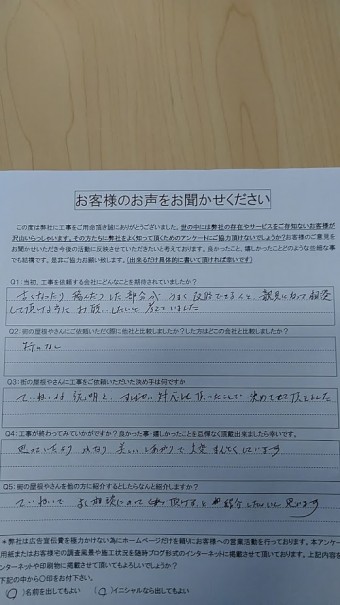 お客様のお声をお聞かせください
この度は弊社に工事をご用命頂き誠にありがとうございました。世の中には弊社の存在やサービスをご存知ないお客様が
沢山いらっしゃいます。その方たちに弊社をよく知って頂くためのアンケートにご協力頂けないでしょうか?お客様のご意見を
お聞かせいただき今後の活動に反映させていただきたいと考えております。良かったこと、嬉しかったことどのような些細な事
でも結構です。是非ご協力お願い致します。(出来るだけ具体的に書いて頂ければ幸いです)
Q1:当初、工事を依頼する会社にどんなことを期待されていましたか?
古くなったり 痛んだりした部分が
して頂けるように お願いしたいと 考えていました
Q2:街の屋根やさんにご依頼いただく際に他社と比較しましたか?した方はどこの会社と比較しましたか?
特になし
Q3:街の屋根やさんに工事をご依頼いただいた決め手は何ですか
ていねいな 説明と、すばやい 対応を して頂いたことで 決めさせて頂きました
Q4:工事が終わってみていかがですか?良かった事・嬉しかったことを忌憚なく頂戴出来ましたら幸いです。
思っていたより かなり 美しい しあがりで 大変 まんぞくしています
Q5:街の屋根やさんを他の方に紹介するとしたらなんと紹介しますか?
ていねいで よく相談にのって 頂けると 紹介したいと思います
*弊社は広告宣伝費を極力かけない為にホームページだけを頼りにお客様への営業活動を行っております。本アンケー
用紙またはお客様宅の調査風景や施工状況を随時ブログ形式のインターネットに掲載させて頂いております。上記内容を
ンターネットや印刷物に掲載させて頂いてもよろしいでしょうか?
下記の中から〇印をお付下さい。
( 〇 )名前を出してもよい ( 〇 )イニシャルなら出してもよい